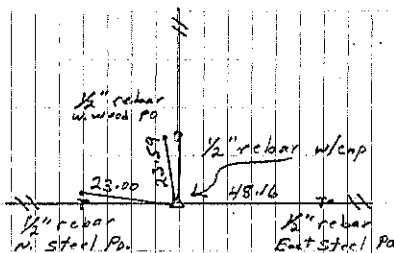 1/2" rebar
W. Wood PO
23.59
1/2" rebar w/cap
23.00
48.16
1/2" rebar
N. Steel Po.
1/2" rebar
East Steel Po